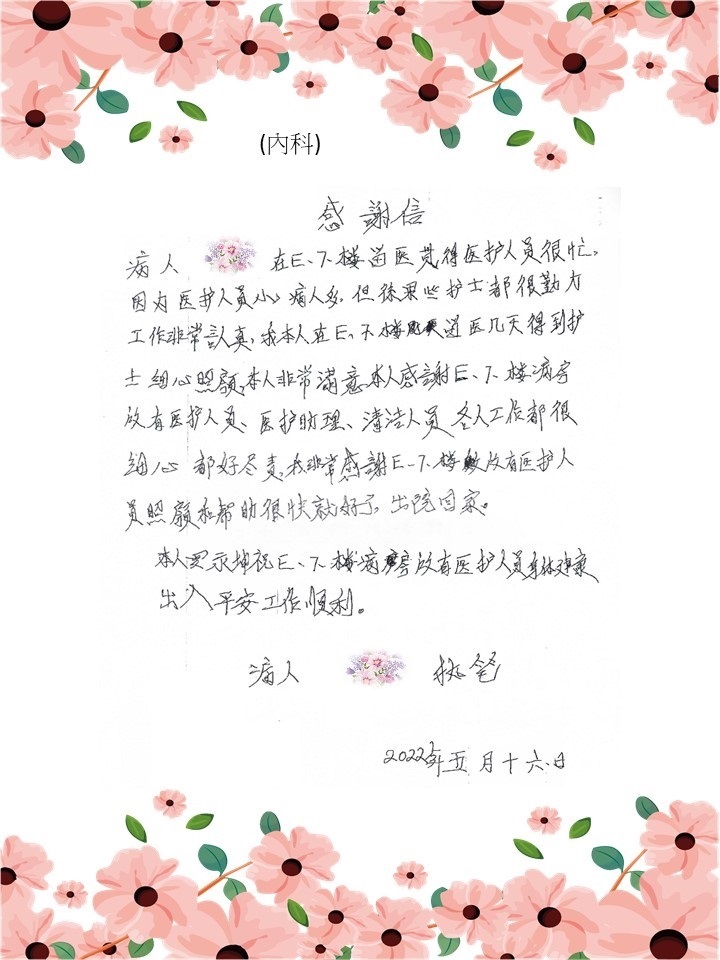 (內科)
感謝信
病人 在E.7.楼留医觉得医护人员很忙,
因为医护人员小,病人多,但 护士都很勤力
工作非常認真,我本人在E.7.楼 留医几天得到护
士细心照顧,本人非常满意,本人感謝E.7.楼病房
放有医护人员、医护助理、清洁人员 冬人工作都很
细心 都好尽责,我非常感謝E.7.楼 放有医护人
员照顧和帮助很快就好了,出院回家。
本人 祝E.7.楼病房放有医护人员身体健康
出入平安工作顺利。
病人
2022年五月十六日